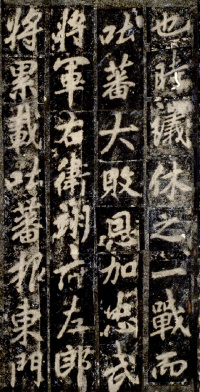 也休之一戰而
吐蕃大敗恩加忠武
將軍右衛翊府左郎
將累載吐蕃報東門